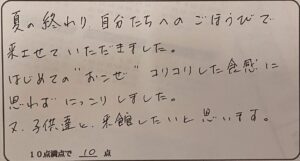 夏の終わり、自分たちへのごほうびで
来させていただきました。
はじめての"おこぜ"コリコリした食感に
思わずにっこりしました。
又、子供達と、来館したいと思います。
10点満点で 10 点